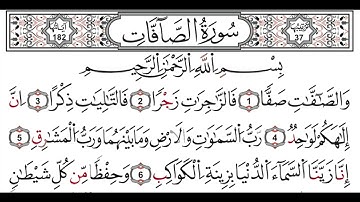 سُورَةُ الصَّافَّات
37
182
بِسْمِ اللهِ الرَّحْمٰنِ الرَّحِيمِ
وَالصَّافَّاتِ صَفًّا 1 فَالزَّاجِرَاتِ زَجْرًا 2 فَالتَّالِيَاتِ ذِكْرًا 3 اِنَّ
اِلٰهَكُمْ لَوَاحِدٌ 4 رَبُّ السَّمٰوَاتِ وَالْاَرْضِ وَمَابَيْنَهُمَا وَرَبُّ الْمَشَارِقِ 5
اِنَّا زَيَّنَّا السَّمَآءَ الدُّنْيَا بِزِينَةٍ الْكَوَاكِبِ 6 وَحِفْظًا مِنْ كُلِّ شَيْطَانٍ